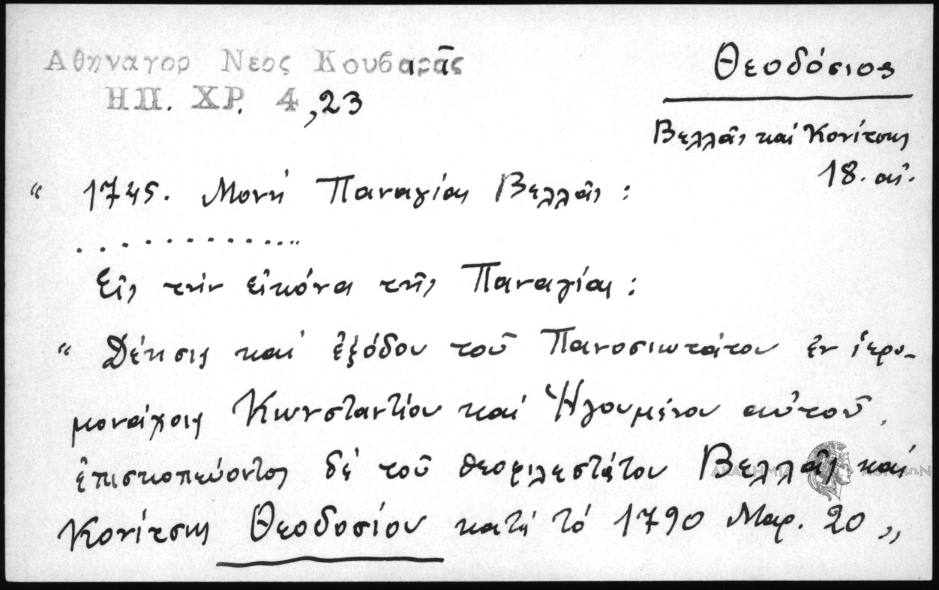 Αθηναγορ Νεος Κουβαρᾶς
ΗΠ. ΧΡ. 4,23
Θεοδόσιος
Βελλᾶς καί Κονίτσης
18. αἰ.
“ 1745. Μονή Παναγίας Βελλᾶς :
. . . . . . . . . . . . .
Εἰς τήν εἰκόνα τῆς Παναγίας :
“ Δέησις καί ἐξόδου τοῦ Πανοσιωτάτου ἐν ἱερο-
μονάχοις Κωνσταντίου καί Ἡγουμένου αὐτοῦ,
ἐπισκοπεύοντος δέ τοῦ θεοφιλεστάτου Βελλᾶς καί
Κονίτσης Θεοδοσίου κατά τό 1790 Μαρ. 20 „